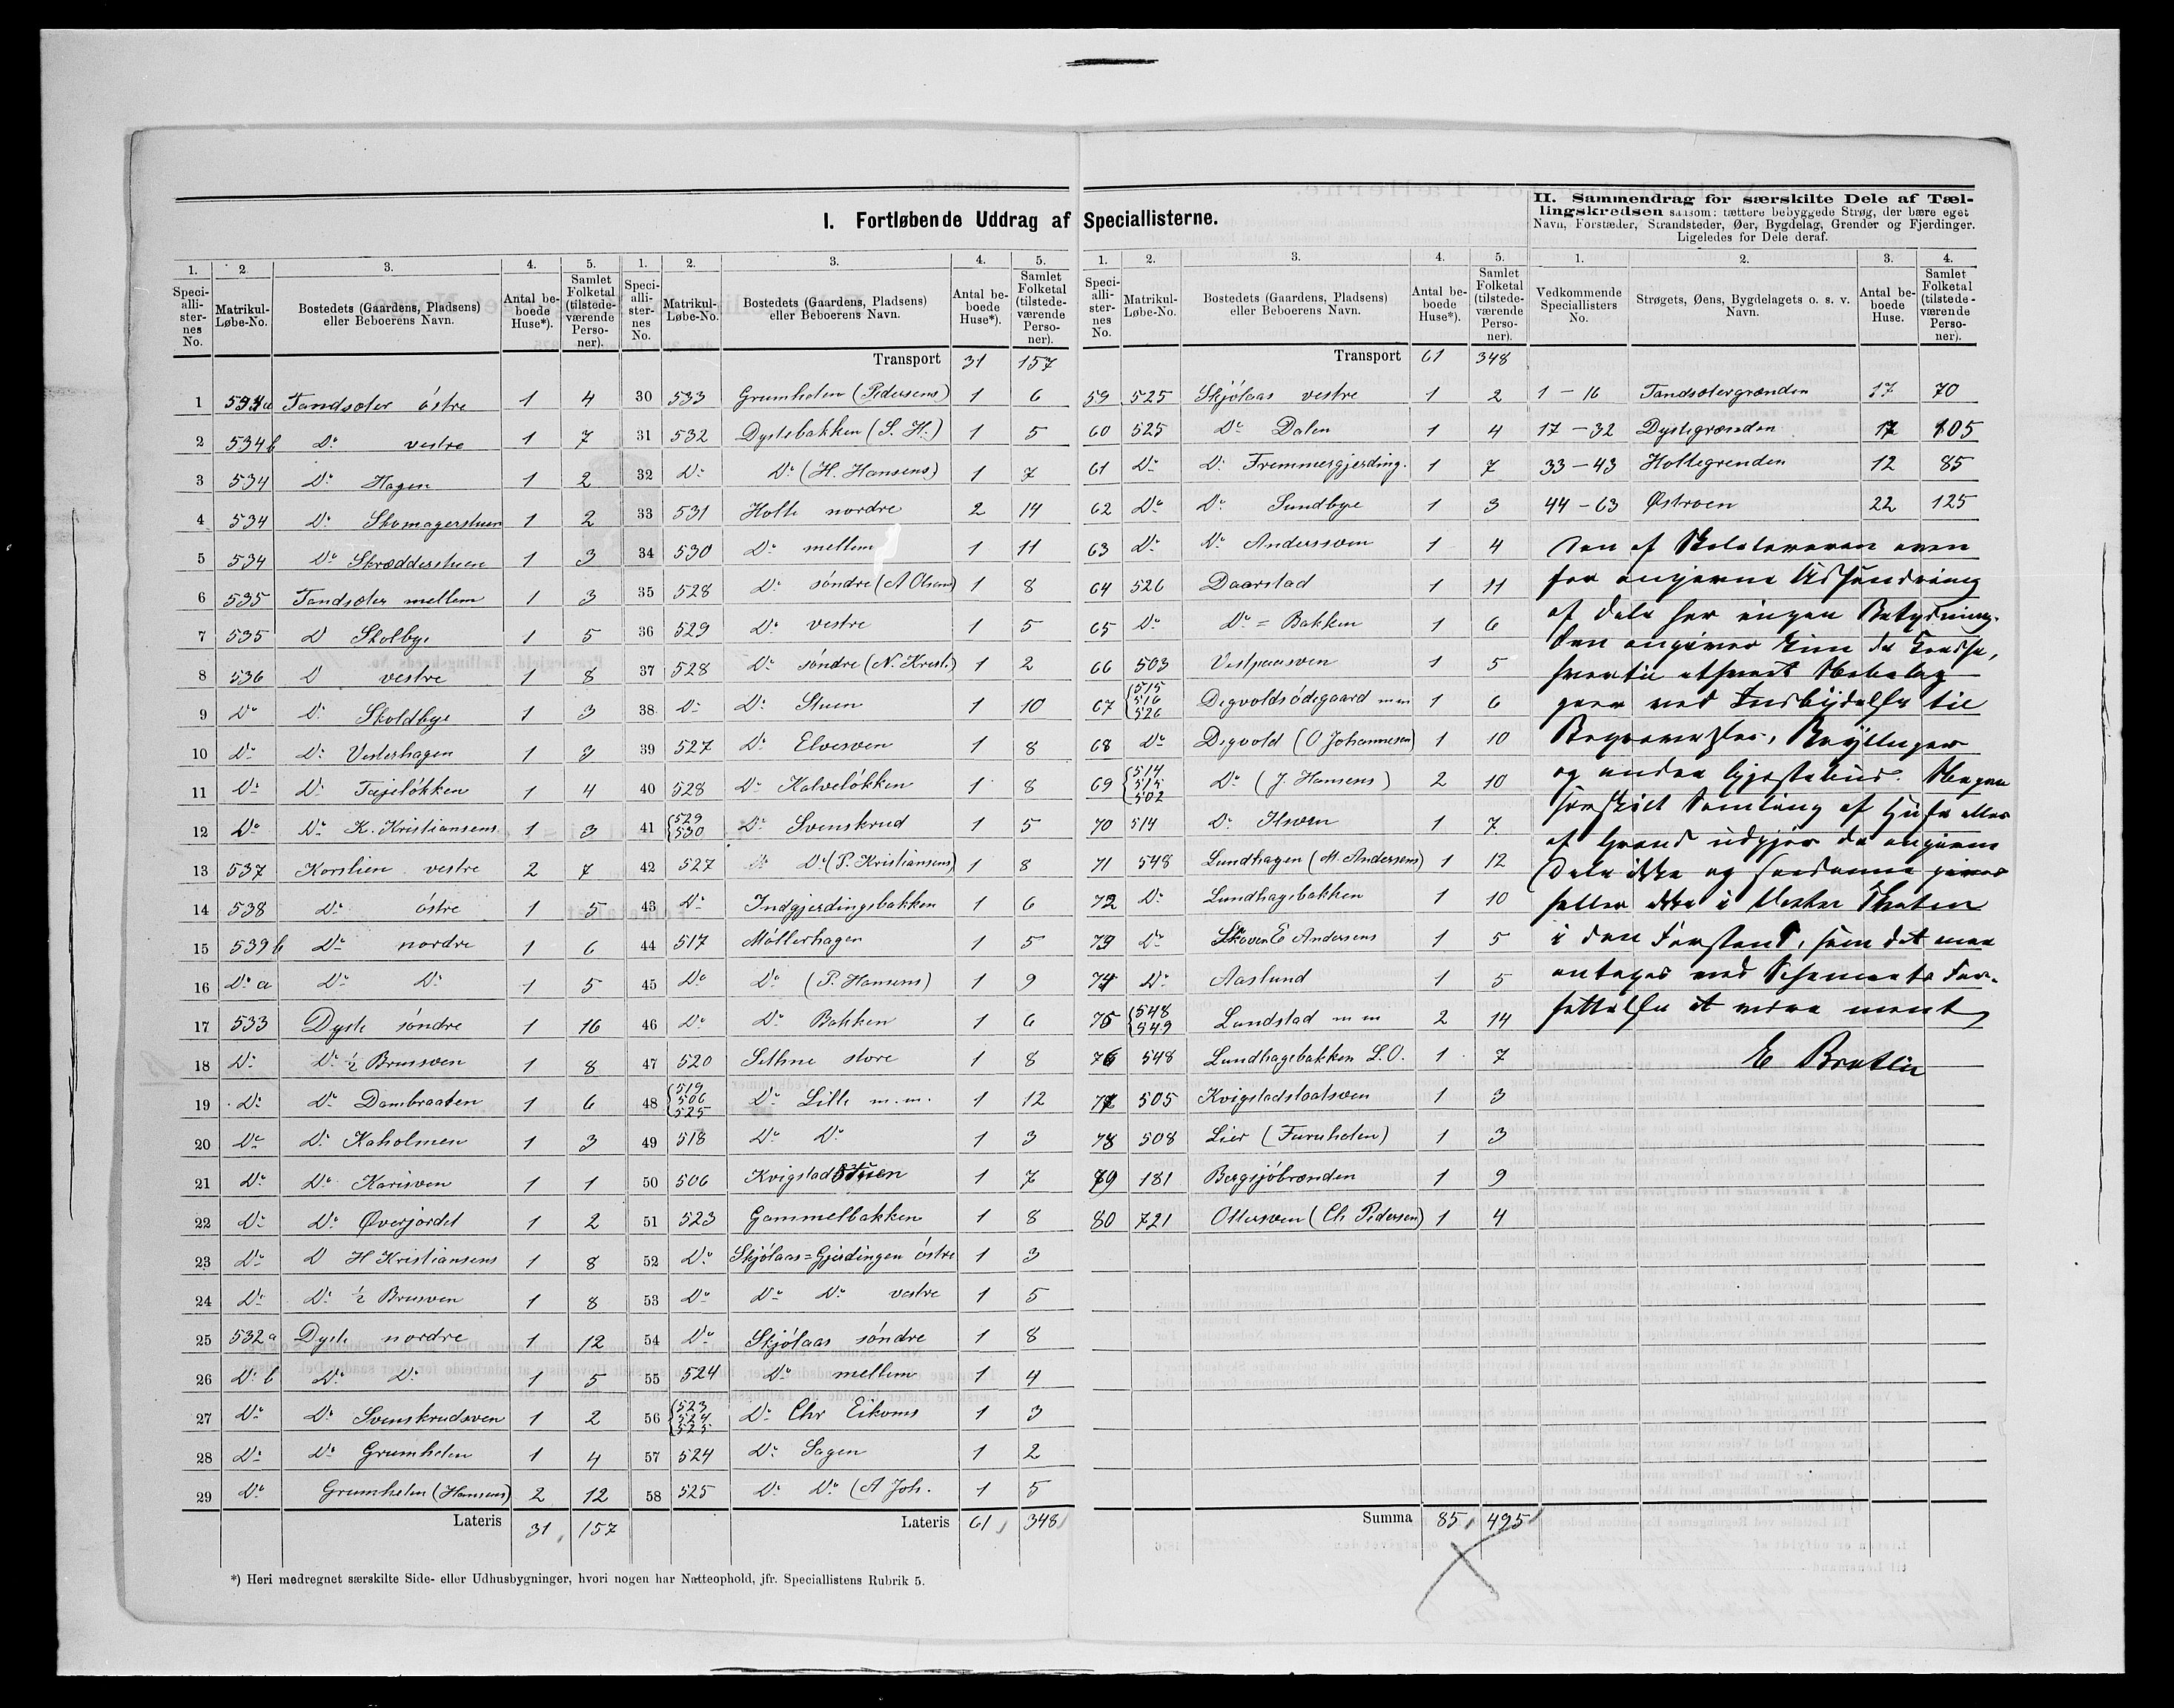 I. Fortløbende Uddrag af Speciallisterne.
1. 2. 3. 4. 5.
Speciallisternes No. Matrikul-Løbe-No. Bostedets (Gaardens, Pladsens) eller Beboerens Navn. Antal beboede Huse*). Samlet Folketal (tilstedeværende Personer).
1 534a Tandsæter østre 1 4
2 534b Do vestre 1 7
3 534 Do Hagen 1 2
4 534 Do Skomagerstuen 1 2
5 534 Do Skræddderstuen 1 3
6 535 Tandsæter mellem 1 3
7 535 D Skolbye 1 5
8 536 D vestre 1 8
9 Do Do Skoldbye 1 3
10 Do Do Vesterhagen 1 3
11 Do Do Tajeløkken 1 4
12 Do Do K. Kristiansens 1 3
13 537 Korslien vestre 2 7
14 538 Do østre 1 5
15 539b Do nordre 1 6
16 Do a Do Do 1 5
17 533 Dyste søndre 1 16
18 Do Do ½ Brusven 1 8
19 Do Do Dambraaten 1 6
20 Do Do Kaholmen 1 3
21 Do Do Karisven 1 1
22 Do Do Øverjordet 1 2
23 Do D H Kristiansens 1 8
24 Do Do ½ Brusven 1 8
25 532a Dyste nordre 1 12
26 Do b Do Do 1 5
27 Do Do Svenskrudsven 1 2
28 Do Do Grumholen 1 4
29 Do Grumholen (Hansens) 2 12
Lateris 31 157
1. 2. 3. 4. 5.
Speciallisternes No. Matrikul-Løbe-No. Bostedets (Gaardens, Pladsens) eller Beboerens Navn. Antal beboede Huse*). Samlet Folketal (tilstedeværende Personer).
Transport 31 157
30 533 Grumholen (Pedersens) 1 6
31 532 Dystebakken (S. H.) 1 5
32 Do Do (H. Hansens) 1 7
33 531 Holte nordre 2 14
34 530 Do mellem 1 11
35 528 Do søndre (A Olsens) 1 8
36 529 Do vestre 1 5
37 528 Do søndre (N. Krist.) 1 2
38 Do Do Stuen 1 10
39 527 Do Elvesven 1 8
40 528 Do Kalveløkken 1 8
41 529 530 Do Svenskrud 1 5
42 527 Do Do (P. Kristiansens) 1 8
43 Do Indgjerdingsbakken 1 6
44 517 Møllerhagen 1 5
45 Do Do (P. Hansens) 1 9
46 Do Do Bakken 1 6
47 520 Sethne store 1 8
48 519 506 525 Do Lille m.m. 1 12
49 518 Do Do 1 3
50 506 Kvigstadstuen 1 7
51 523 Gammelbakken 1 8
52 Do Skjølaas=Gjerdingen østre 1 3
53 Do Do Do vestre 1 5
54 Do Skjølaas søndre 1 8
55 524 Do mellem 1 4
56 523 524 525 Do Chr Eikoms 1 3
57 524 Do Sagen 1 2
58 525 Do Do (A Joh. 1 5
Lateris 61 348
1. 2. 3. 4. 5.
Speciallisternes No. Matrikul-Løbe-No. Bostedets (Gaardens, Pladsens) eller Beboerens Navn. Antal beboede Huse*). Samlet Folketal (tilstedeværende Personer).
Transport 61 348
59 525 Skjølaas vestre 1 2
60 525 Do Dalen 1 4
61 Do Do Fremmergjerding. 1 7
62 Do Do Sundbye 1 3
63 Do Do Anderssven 1 4
64 526 Daarstad 1 11
65 Do Do = Bakken 1 6
66 503 Vestpaasven 1 5
67 515 516 526 Degvoldsødegaard mm 1 6
68 Do Degvold (O Johannesen) 1 10
69 514 515 502 Do (J. Hansens) 2 10
70 514 Do Ilsven 1 7
71 548 Lundhagen (M. Andersens) 1 12
72 Do Lundhagebakken 1 10
73 Do Skoven E Andersens 1 5
74 Do Aaslund 1 5
75 548 549 Lundstad m m 2 14
76 548 Lundhagebakken L.O. 1 7
77 505 Kvigstadstaatsven 1 3
78 508 Lier (Furuholen) 1 3
79 181 Bergsjøbrænden 1 9
80 721 Ottersven (Ch Pedersen) 1 4
Summa 85 495
II. Sammendrag for særskilte Dele af Tællingskredsen saasom: tættere bebyggede Strøg, der bære eget Navn, Forstæder, Strandsteder, Øer, Bygdelag, Grender og Fjerdinger. Ligeledes for Dele deraf.
1. 2. 3. 4.
Vedkommende Speciallisters No. Strøgets, Øens, Bygdelagets o. s. v. Navn. Antal beboede Huse. Samlet Folketal (tilstedeværende Personer).
1 – 16 Tandsætergrænden 17 70
17 – 32 Dystegrænden 17 105
33 – 43 Holtegrenden 12 85
44 – 63 Østroen 22 125
Den af Skolelæreren oven
for angivne Udsondring
af Dele har ingen Betydning.
Den angiver kun de Kredse,
hvortil ethvert
gaar ved Indbydelse til
Begravelser, Bryllupper
og andre Gjæstebud. Nogen
særskilt Samling af Huse eller
af Grend udgjør de angivne
Dele ikke og saadanne gives
heller ikke i Vester Thoten
i den Forstand, som det maa
antages med Schemaets For-
fattelse at være ment
E Bratlie
*) Heri medregnet særskilte Side- eller Udhusbygninger, hvori nogen har Natteophold, jfr. Speciallistens Rubrik 5.